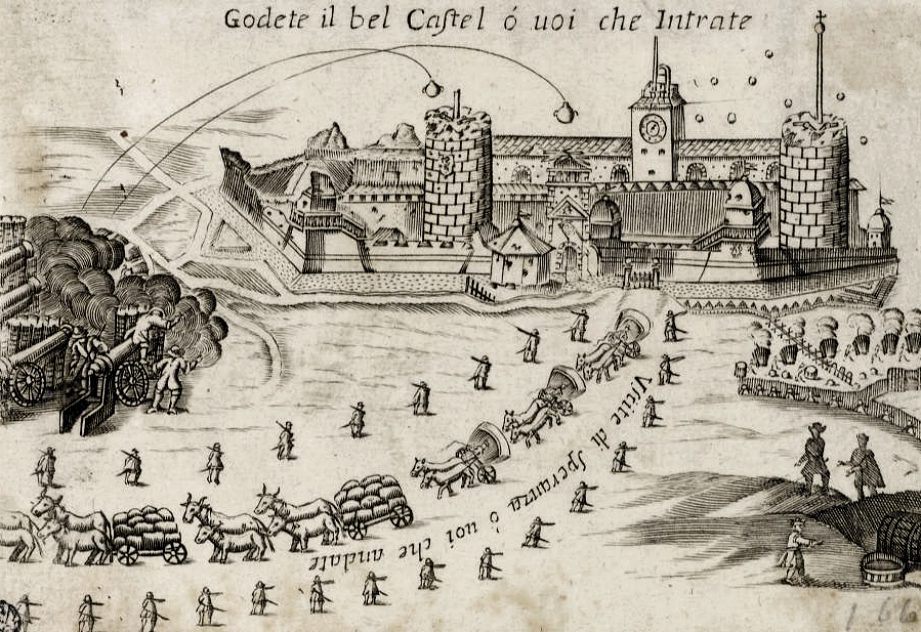 Godete il bel Caſtel ó uoi che Intrate
Vſcite di Speranza ó uoi che andate
166